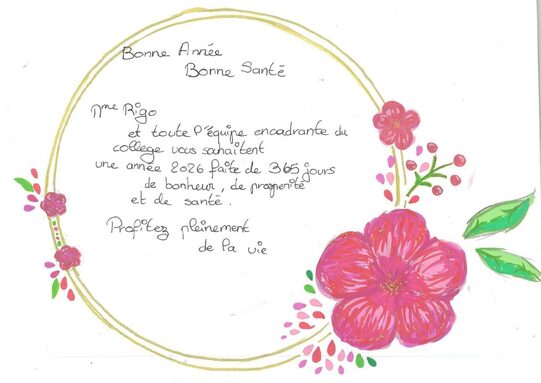 Bonne Année
Bonne Santé
Mme Rigo
et toute l'équipe encadrante du
college vous souhaitent
une année 2026 faite de 365 jours
de bonheur, de prosperité
et de santé.
Profitez pleinement
de la vie